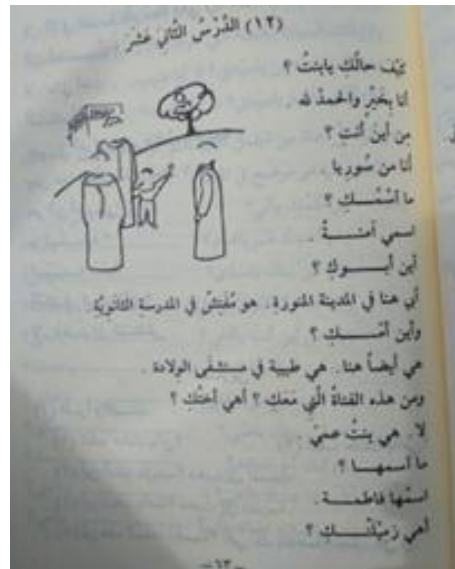 (١٢) الدَّرْسُ الثَّانِي عَشَرَ
كَيْفَ حالُكِ يابنتُ ؟
أنا بِخَيْرٍ والحمدُ لله
مِن أينَ أنتِ ؟
أنا من سُوريا
ما اسْمُكِ ؟
اسمي آمنـةُ .
أين أبـوكِ ؟
أبي هنا في المدينة المنورةِ . هو مُفَتِّشٌ في المدرسة الثَّانويَّة
وأين أمُّـكِ ؟
هي أيضاً هنا . هي طبيبة في مستشفى الولادة .
ومن هذه الفتاةُ الَّتي مَعَكِ ؟ أهي أختُكِ ؟
لا . هي بنتُ عمي
ما اسمهـا ؟
اسمُها فاطمـة .
أهي زَمِيلَتُـكِ ؟
–١٣–